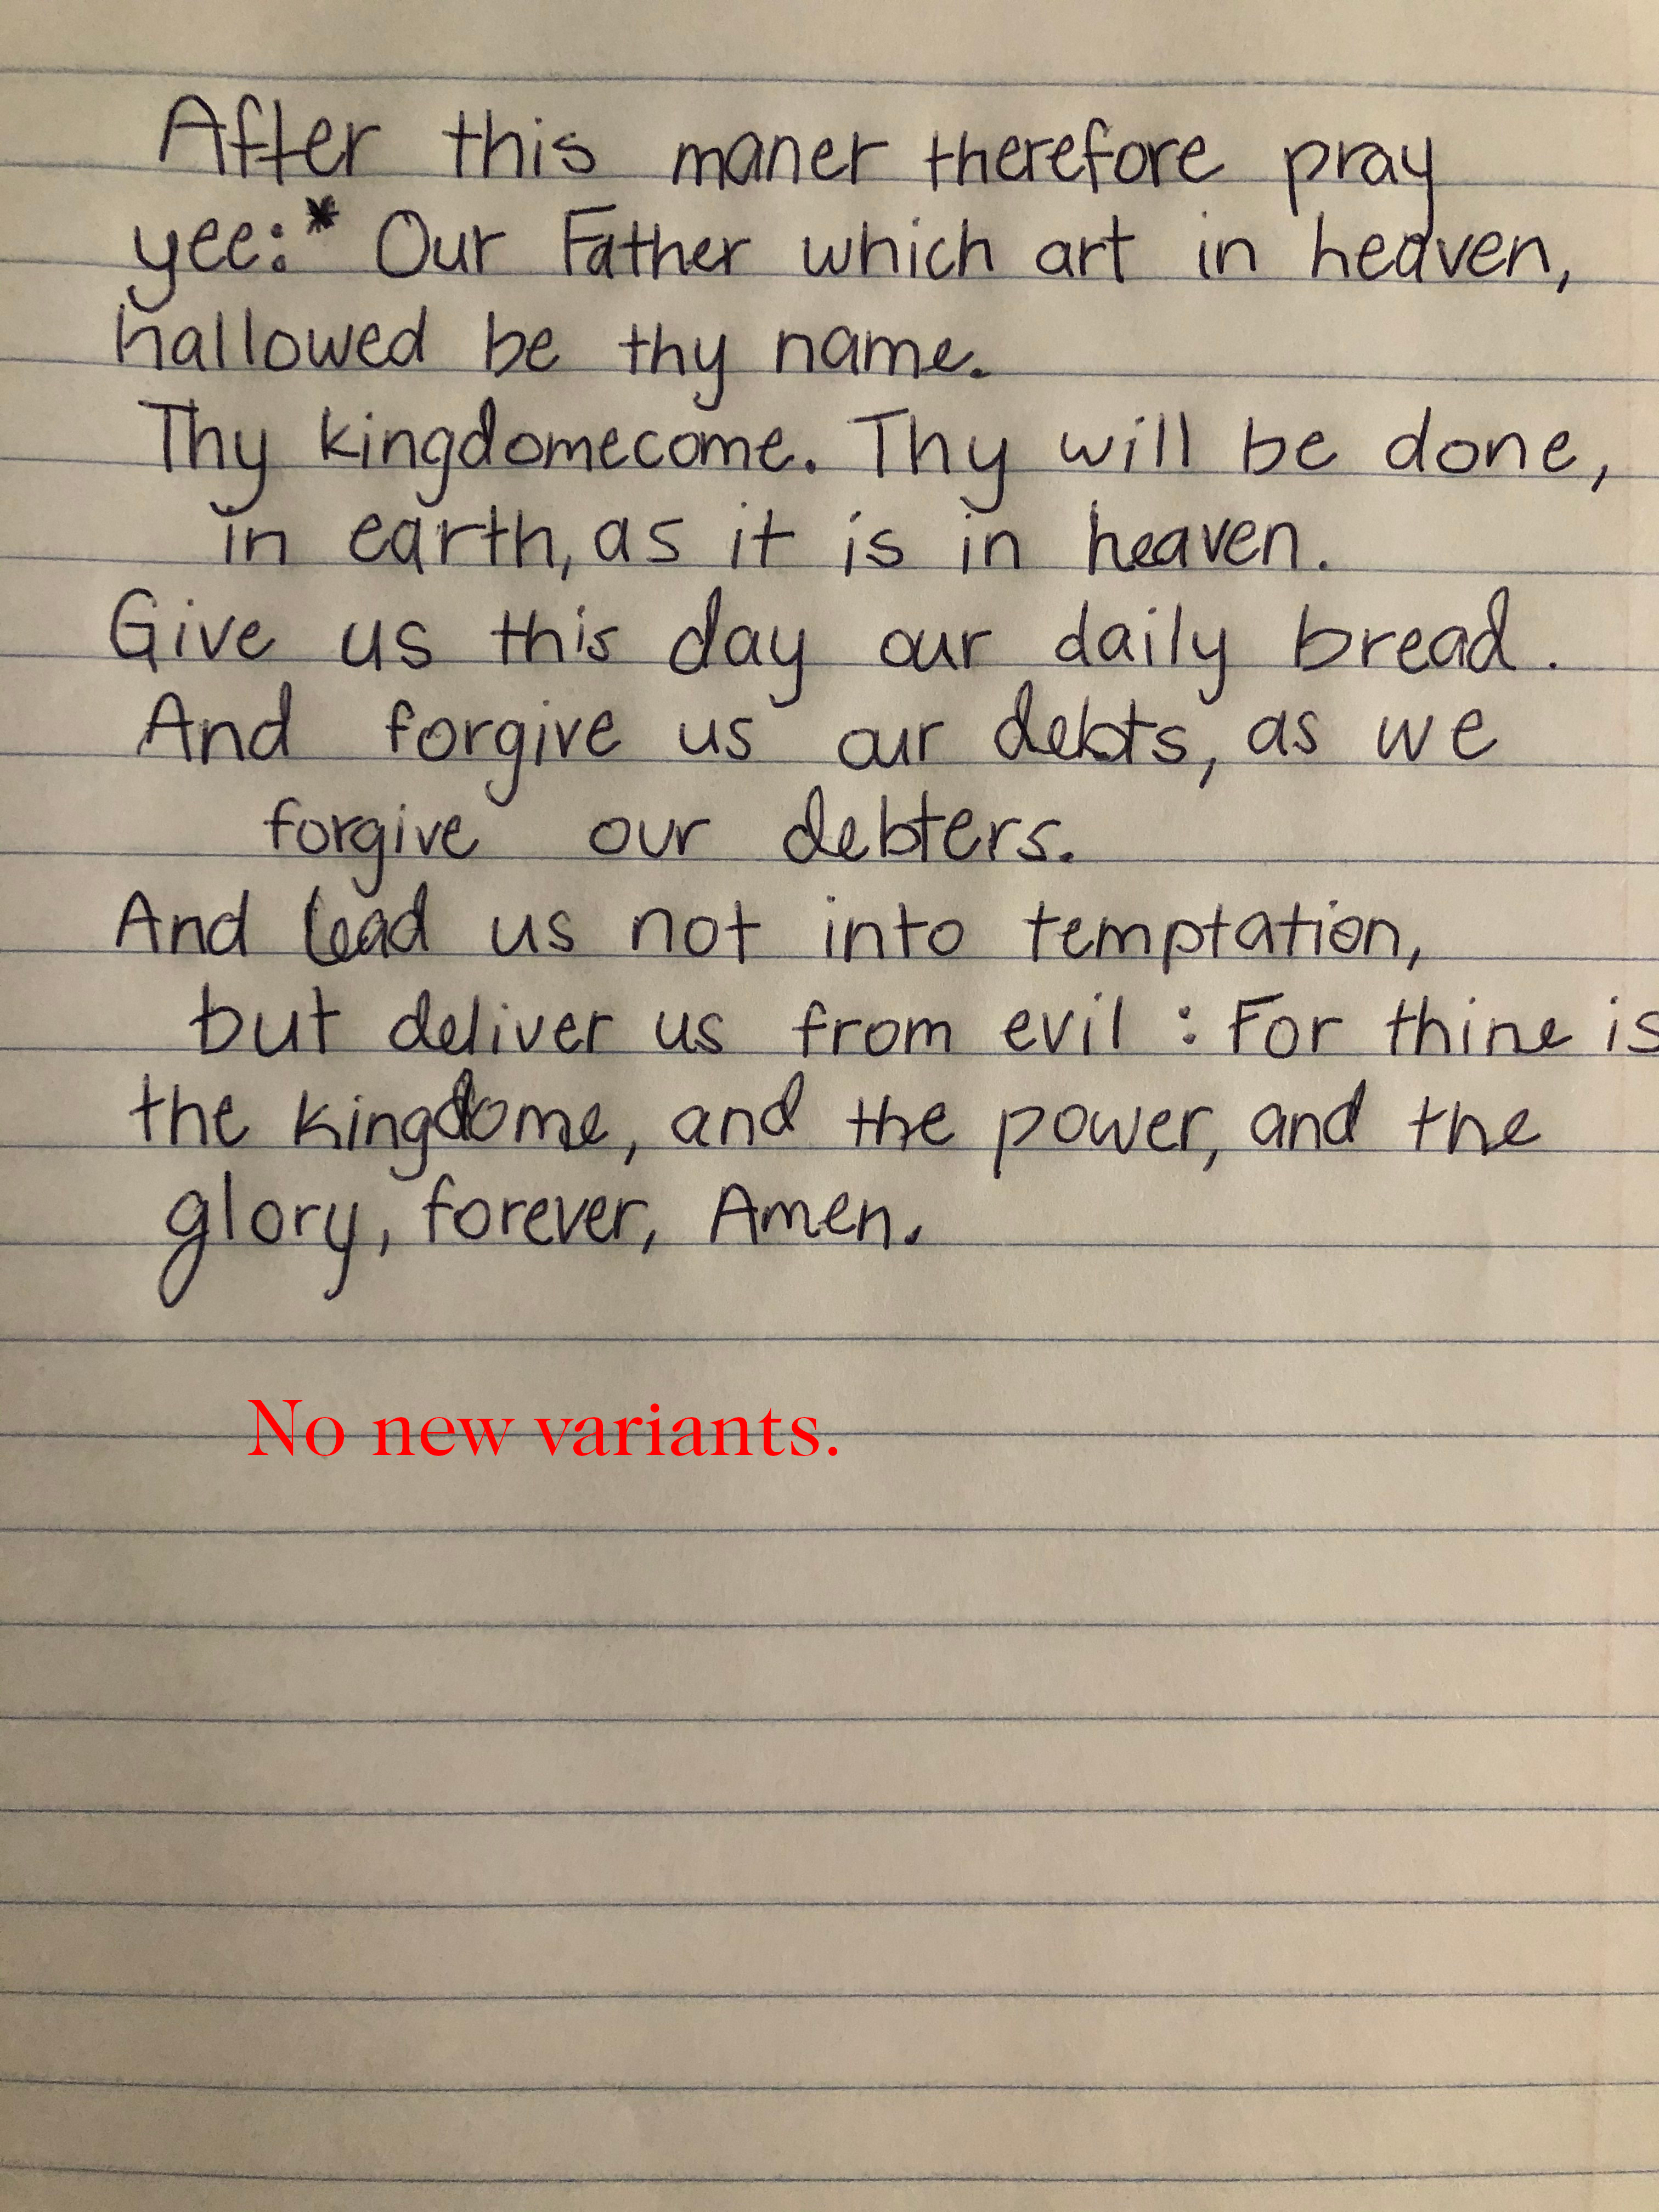 After this maner therefore pray
yee:* Our Father which art in heaven,
hallowed be thy name.
Thy kingdomecome. Thy will be done,
in earth, as it is in heaven.
Give us this day our daily bread.
And forgive us our debts, as we
forgive our debters.
And lead us not into temptation,
but deliver us from evil : For thine is
the kingdome, and the power, and the
glory, forever, Amen.
No new variants.